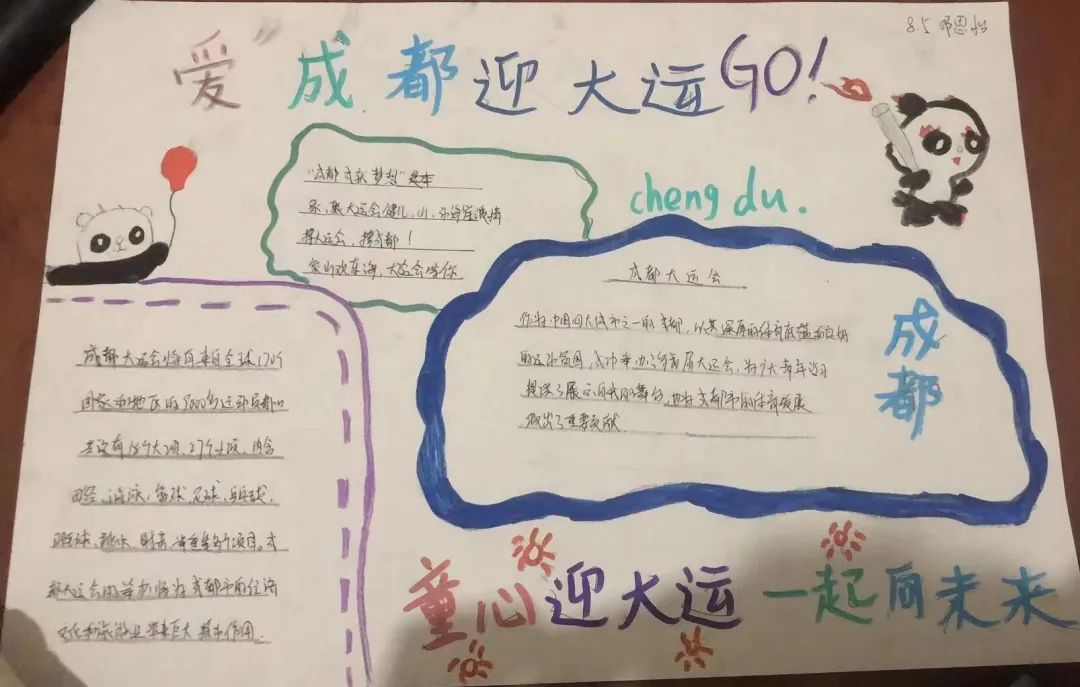 8.5 邓思怡
爱成都迎大运GO!
"成都成就梦想"是本
会山欢东海,大运会
择大运会,择成都!
cheng du.
成都大运会
作为中国四大城市之一的成都,以其深厚的体育底蕴和良好
的运动氛围,成功举办了多届大运会,为广大青年学习
提供了展示自我的舞台,也为成都市的体育发展
做出了重要贡献
成都
成都大运会将有来自全球170个
国家和地区的8000多运动员参加
共设有18个大项,27个小项,内含
田径、游泳、篮球、足球、乒乓球、
跳水、射击等重要多个项目。成
都大运会的举办将为成都市的经济
文化和旅游业带来巨大推动作用.
童心迎大运 一起向未来